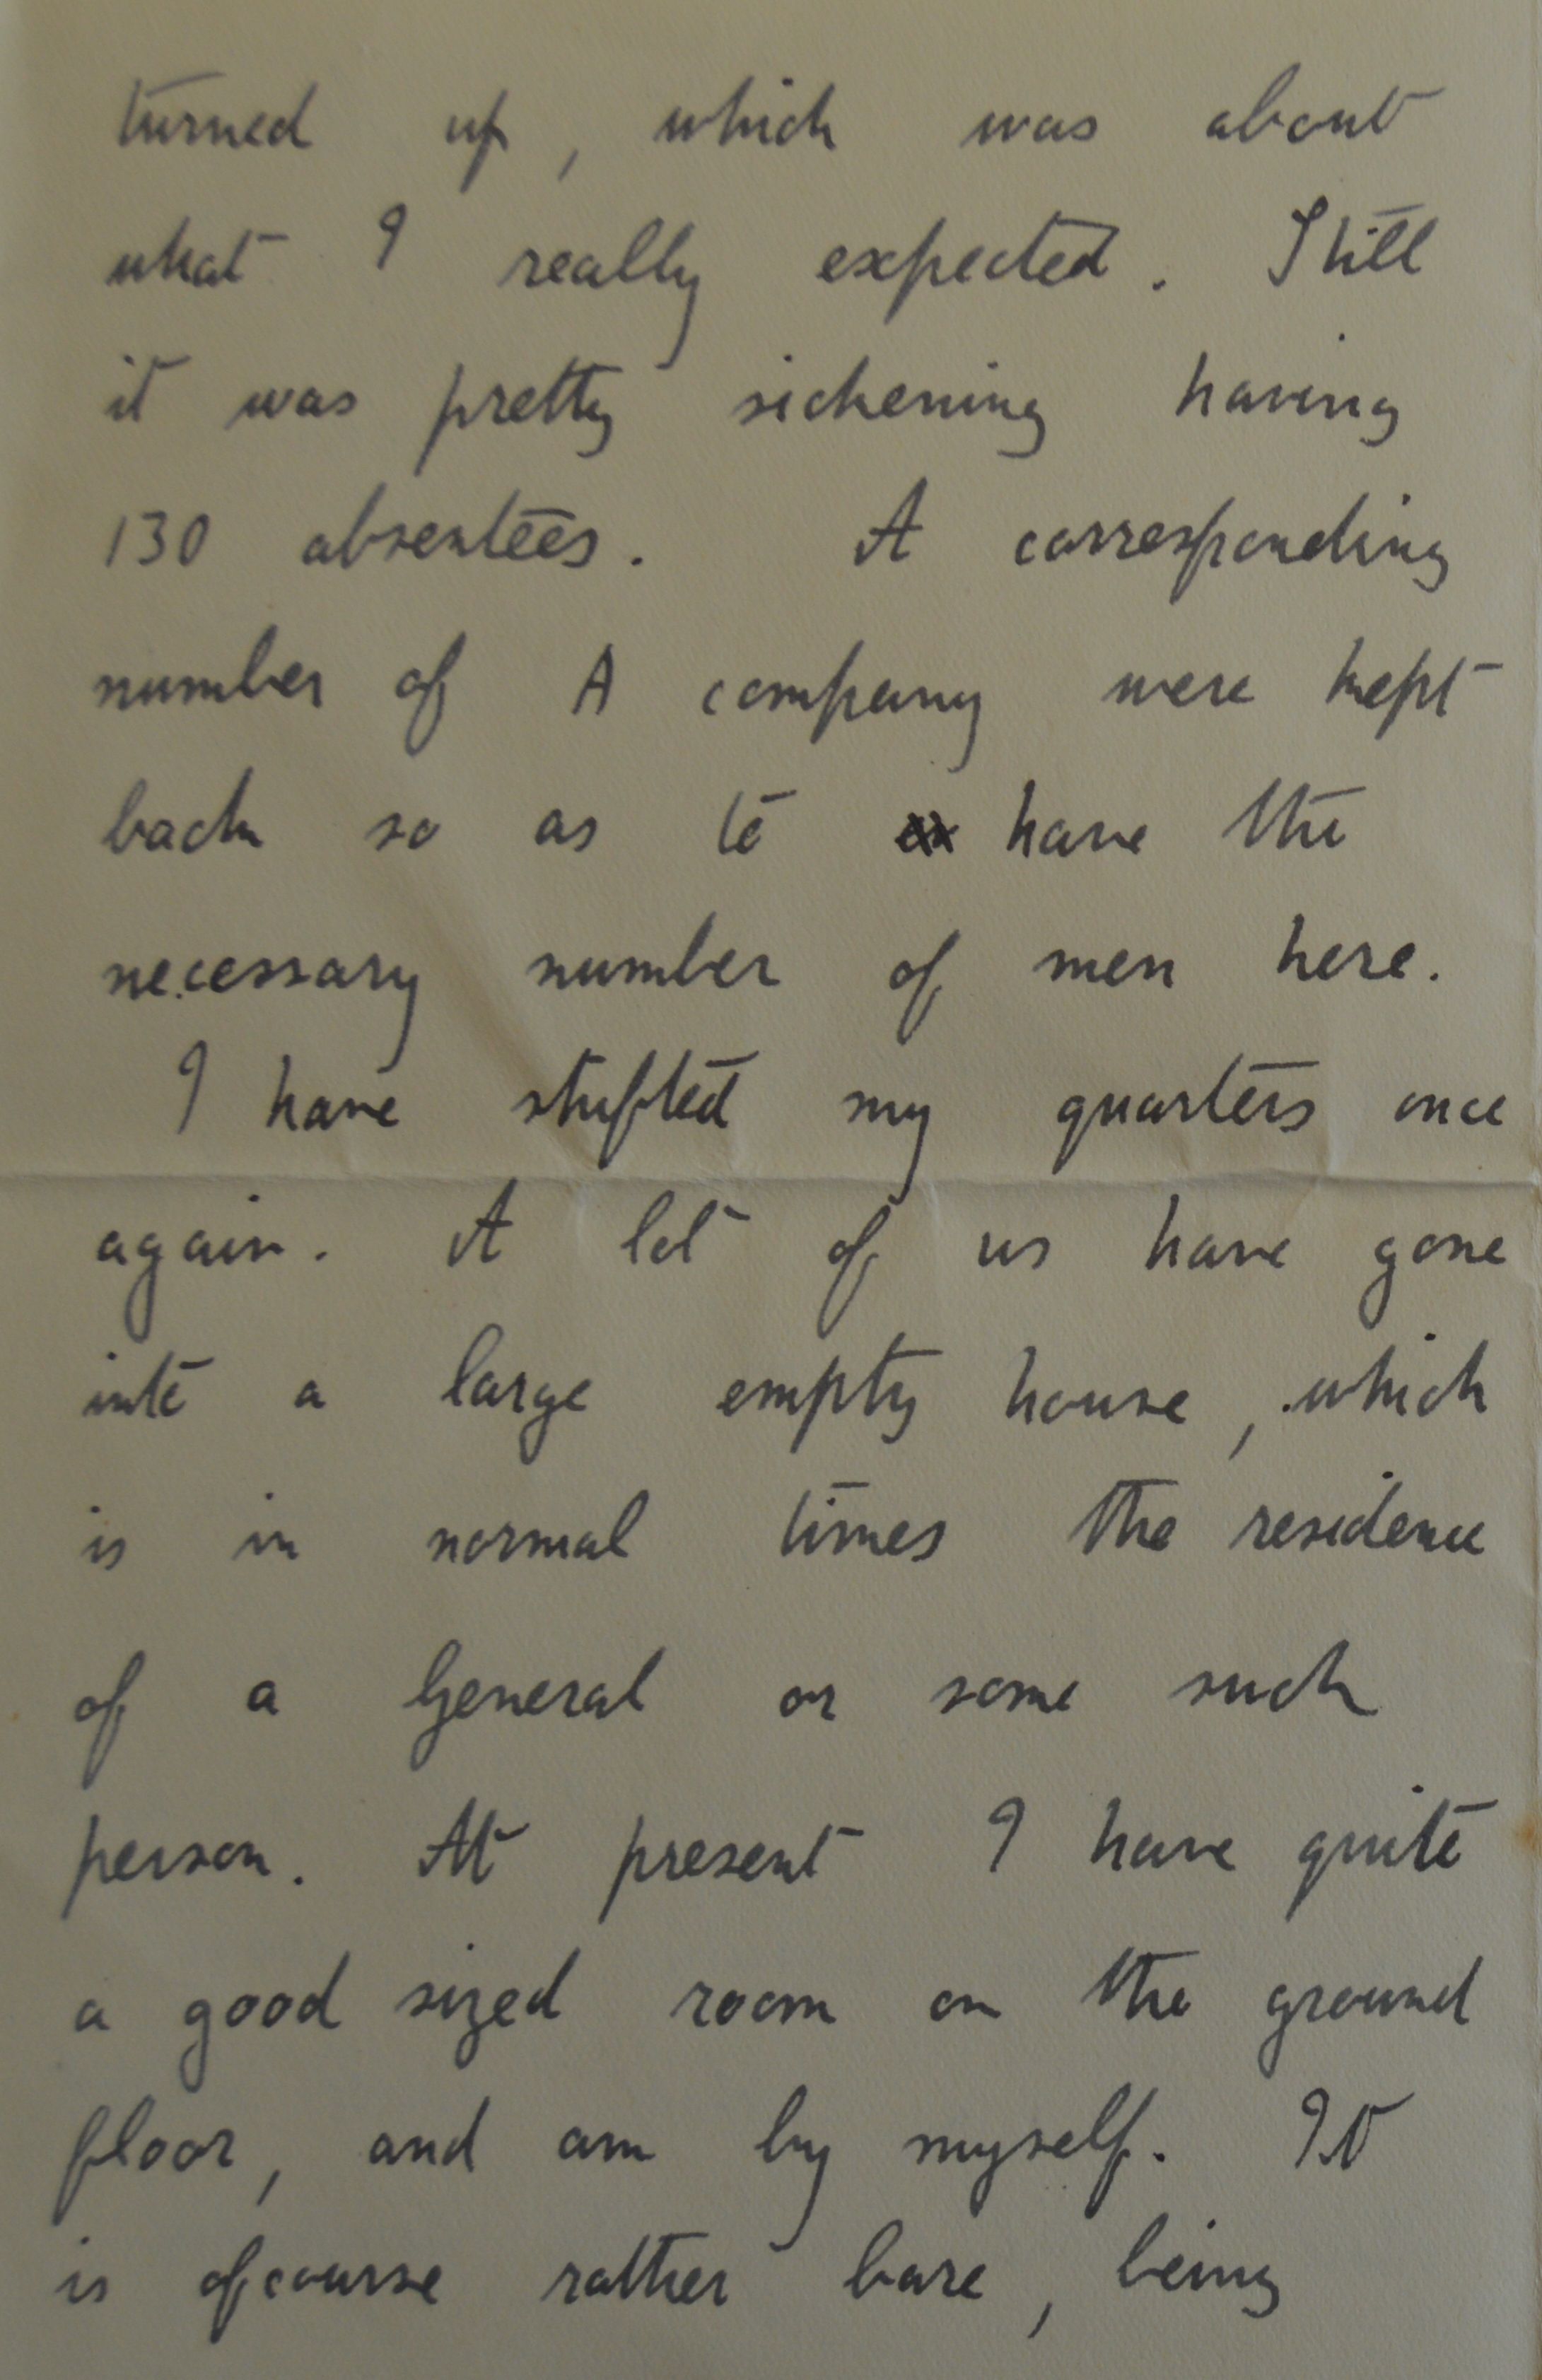 turned up, which was about
what I really expected. Still
it was pretty sickening having
130 absentees. A corresponding
number of A company were kept
back so as to have the
necessary number of men here.
I have shifted my quarters once
again. A lot of us have gone
into a large empty house, which
is in normal times the residence
of a General or some such
person. At present I have quite
a good sized room on the ground
floor, and am by myself. It
is ofcourse rather bare, being